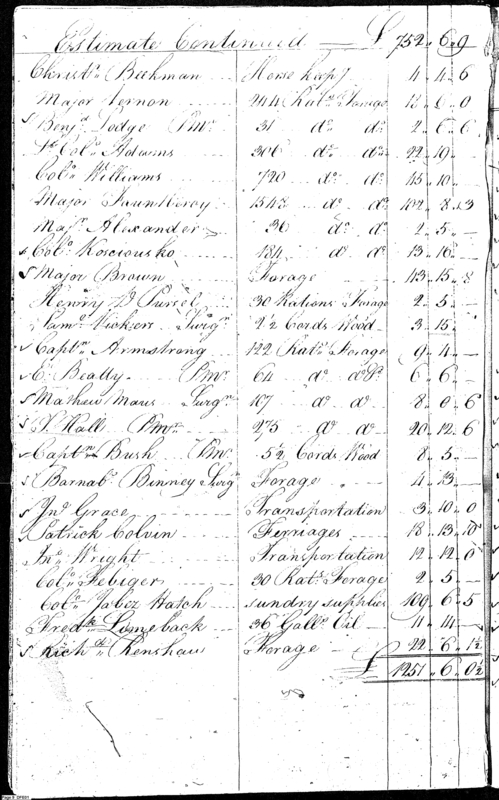 Estimate Continued — £ 752 " 6 " 9
Christr. Beekman Horse keepg 4 " 4 " 6
Major Vernon 244 Rats. Forage 18 " 6 " 0
Benjn. Lodge Pmr. 31 do. do. 2 " 6 " 6
Lt. Colo. Adams 306 do. do. 22 " 19 "
Colo. Williams 720 do. do. 45 " 10 "
Major Fauntleroy do. do. 102 " 8 " 3
Majr. Alexander 30 do. do. 2 " 5 "
Colo. Kosciousko 184 do do. 13 " 16 "
Major Brown Forage 43 " 15 " 8
Henry D Pursel 30 Rations Forage 2 " 5 "
Saml. Vickers Surgn 2½ Cords Wood 3 " 15 "
Captn. Armstrong 122 Rats. Forage 9 " 4 —
E. Beatty Pmr. 64 do do 6 " 6 —
Mathew Maus Surgn 107 do do 8 " 0 " 6
J. Hall Pmr. 275 do do 20 " 12 " 6
Captn. Bush Pmr. 5½ Cords Wood 8 " 5 —
Barnabs. Binney Surgn Forage 4 " 13 —
Jno. Grace Transportation 3 " 10 " 0
Patrick Colvin Ferriages 18 " 13 " 10
Jno. Wright Transportation 12 " 12 " 0
Colo. Febiger 30 Rats. Forage 2 " 5 —
Colo. Jabez Hatch sundry supplies 109 " 6 " 5
Fredk. Limeback 36 Galls. Oil 4 " 14 —
Richd. Renshaw Forage 22 " 6 " 1½
£ 1251 " 6 " 0½